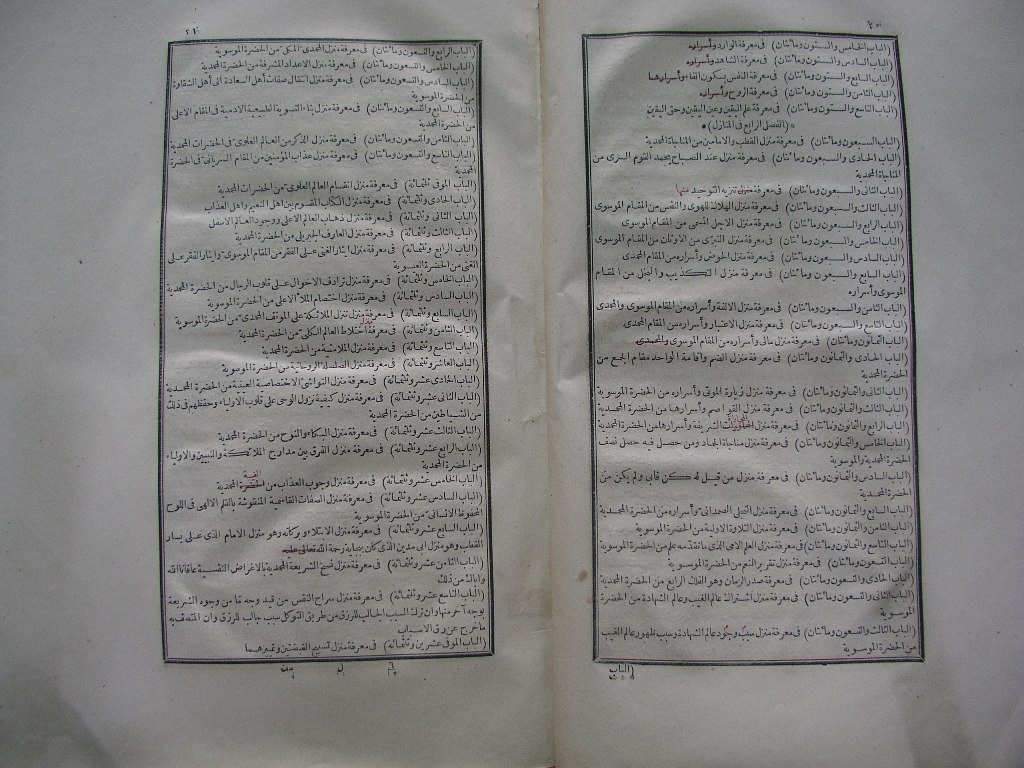 ٢٠
(الباب الخامس والستون ومائتان) فى معرفة الوارد وأسراره
(الباب السادس والستون ومائتان) فى معرفة الشاهد وأسراره
(الباب السابع والستون ومائتان) فى معرفة النفس بسكون الفاء وأسرارها
(الباب الثامن والستون ومائتان) فى معرفة الروح وأسراره
(الباب التاسع والستون ومائتان) فى معرفة علم اليقين وعين اليقين وحق اليقين
*(الفصل الرابع فى المنازل)*
(الباب السبعون ومائتان) فى معرفة منزل القطب والامامين من المناجاة المحمدية
(الباب الحادى والسبعون ومائتان) فى معرفة منزل عند الصباح يحمد القوم السرى من
المناجاة المحمدية
(الباب الثانى والسبعون ومائتان) فى معرفة منزل تنزيه التوحيد
(الباب الثالث والسبعون ومائتان) فى معرفة منزل الهلاك للهوى والنفس من المقام الموسوى
(الباب الرابع والسبعون ومائتان) فى معرفة منزل الاجل المسمى من المقام الموسوى
(الباب الخامس والسبعون ومائتان) فى معرفة منزل التبرّى من الاوثان من المقام الموسوى
(الباب السادس والسبعون ومائتان) فى معرفة منزل الحوض وأسراره من المقام المحمدى
(الباب السابع والسبعون ومائتان) فى معرفة منزل التكذيب والبخل من المقام
الموسوى وأسراره
(الباب الثامن والسبعون ومائتان) فى معرفة منزل الالفة وأسراره من المقام الموسوى والمحمدى
(الباب التاسع والسبعون ومائتان) فى معرفة منزل الاعتبار وأسراره من المقام المحمدى
(الباب الثمانون ومائتان) فى معرفة منزل مالى وأسراره من المقام الموسوى والمحمدى
(الباب الحادى والثمانون ومائتان) فى معرفة منزل الضم واقامة الواحد مقام الجمع من
الحضرة المحمدية
(الباب الثانى والثمانون ومائتان) فى معرفة منزل زيارة الموتى وأسراره من الحضرة الموسوية
(الباب الثالث والثمانون ومائتان) فى معرفة منزل القواصم وأسرارها من الحضرة المحمدية
(الباب الرابع والثمانون ومائتان) فى معرفة منزل الشريفة وأسرارها من الحضرة المحمدية
(الباب الخامس والثمانون ومائتان) فى معرفة منزل مناجاة الجماد ومن حصل فيه حصل نصف
الحضرة المحمدية والموسوية
(الباب السادس والثمانون ومائتان) فى معرفة منزل من قيل له كن فابى ولم يكن من
الحضرة المحمدية
(الباب السابع والثمانون ومائتان) فى معرفة منزل التجلى الصمدانى وأسراره من الحضرة المحمدية
(الباب الثامن والثمانون ومائتان) فى معرفة منزل التلاوة الاولية من الحضرة الموسوية
(الباب التاسع والثمانون ومائتان) فى معرفة منزل العلم الامى الذى ما تقدّمه علم من الحضرة الموسوية
(الباب التسعون ومائتان) فى معرفة منزل تقرير النعم من الحضرة الموسوية
(الباب الحادى والتسعون ومائتان) فى معرفة منزل صدر الزمان وهو الفلك الرابع من الحضرة المحمدية
(الباب الثانى والتسعون ومائتان) فى معرفة منزل اشتراك عالم الغيب وعالم الشهادة من الحضرة
الموسوية
(الباب الثالث والتسعون ومائتان) فى معرفة منزل سبب وجود عالم الشهادة وسبب ظهور عالم الغيب
من الحضرة الموسوية
(الباب
٢١
(الباب الرابع والتسعون ومائتان) فى معرفة منزل المحمدى المكى من الحضرة الموسوية
(الباب الخامس والتسعون ومائتان) فى معرفة منزل الاعداد المشرفة من الحضرة المحمدية
(الباب السادس والتسعون ومائتان) فى معرفة منزل انتقال صفات أهل السعادة الى أهل الشقاوة
من الحضرة الموسوية
(الباب السابع والتسعون ومائتان) فى معرفة منزل ثناء التسوية الطينية الآدمية فى المقام الاعلى
من الحضرة المحمدية
(الباب الثامن والتسعون ومائتان) فى معرفة منزل الذكر من العالم العلوى فى الحضرات المحمدية
(الباب التاسع والتسعون ومائتان) فى معرفة منزل عذاب المؤمنين من المقام السريانى فى الحضرة
المحمدية
(الباب الموفى ثلثمائة) فى معرفة منزل انقسام العالم العلوى من الحضرات المحمدية
(الباب الحادى وثلثمائة) فى معرفة منزل الكتاب المقسوم بين اهل النعيم واهل العذاب
(الباب الثانى وثلثمائة) فى معرفة منزل ذهاب العالم الاعلى ووجود العالم الاسفل
(الباب الثالث وثلثمائة) فى معرفة منزل العارف الجبريلى من الحضرة المحمدية
(الباب الرابع وثلثمائة) فى معرفة منزل ايثار الغنى على الفقر من المقام الموسوى وايثار الفقر على
الغنى من الحضرة العيسوية
(الباب الخامس وثلثمائة) فى معرفة منزل ترادف الاحوال على قلوب الرجال من الحضرة المحمدية
(الباب السادس وثلثمائة) فى معرفة منزل اختصام الملأ الاعلى من الحضرة الموسوية
(الباب السابع وثلثمائة) فى معرفة منزل تنزل الملائكة على الموقف المحمدى من الحضرة الموسوية
(الباب الثامن وثلثمائة) فى معرفة اختلاط العالم الكلى من الحضرة المحمدية
(الباب التاسع وثلثمائة) فى معرفة منزل الملامتية من الحضرة المحمدية
(الباب العاشر وثلثمائة) فى معرفة منزل الصلصلة الروحانية من الحضرة الموسوية
(الباب الحادى عشر وثلثمائة) فى معرفة منزل النواشئ الاختصاصية الغيبية من الحضرة المحمدية
(الباب الثانى عشر وثلثمائة) فى معرفة منزل كيفية نزول الوحى على قلوب الاولياء وحفظهم فى ذلك
من الشياطين من الحضرة المحمدية
(الباب الثالث عشر وثلثمائة) فى معرفة منزل البكاء والنوح من الحضرة المحمدية
(الباب الرابع عشر وثلثمائة) فى معرفة منزل الفرق بين مدارج الملائكة والنبيين والاولياء
من الحضرة المحمدية
(الباب الخامس عشر وثلثمائة) فى معرفة منزل وجوب العذاب من الحضرة المحمدية
(الباب السادس عشر وثلثمائة) فى معرفة منزل الصفات القائمية المنقوشة بالقلم الالهى فى اللوح
المحفوظ الانسانى من الحضرة الموسوية
(الباب السابع عشر وثلثمائة) فى معرفة منزل الابتلاء وبركاته وهو منزل الامام الذى على يسار
القطب وهو منزل ابى مدين الذى كان ببجاية رحمة الله تعالى عليه
(الباب الثامن عشر وثلثمائة) فى معرفة منزل نسخ الشريعة المحمدية بالاغراض النفسية عافانا الله
واياك من ذلك
(الباب التاسع عشر وثلثمائة) فى معرفة منزل سراح النفس من قيد وجه تما من وجوه الشريعة
بوجه آخر منها وان ترك السبب الجالب للرزق من طريق التوكل سبب جالب للرزق وان المتصف به
ما خرج عن رق الاسباب
(الباب الموفى عشرين وثلثمائة) فى معرفة منزل تسبيح القبضتين وتمييزهما